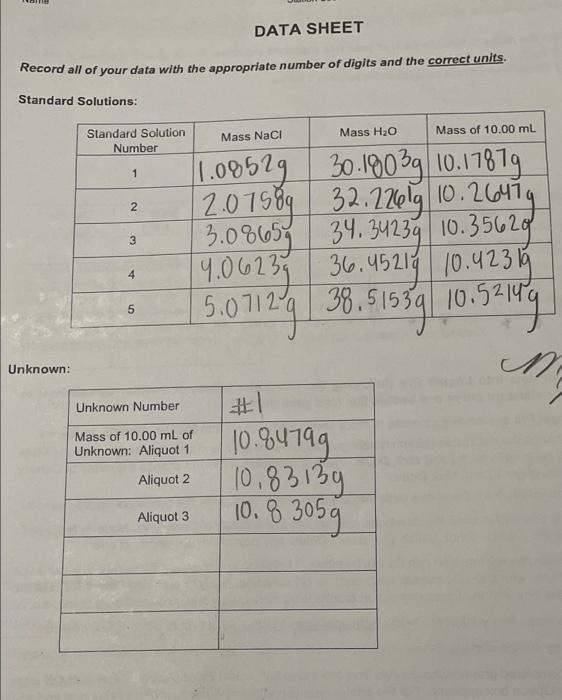 DATA SHEET
Record all of your data with the appropriate number of digits and the correct units.
Standard Solutions:
Standard Solution Number Mass NaCl Mass H₂O Mass of 10.00 mL
1 1.0852g 30.1803g 10.1787g
2 2.0758g 32.2261g 10.2647g
3 3.0865g 34.3423g 10.3562g
4 4.0623g 36.4521g 10.4231g
5 5.0712g 38.5153g 10.5214g
Unknown:
Unknown Number #1
Mass of 10.00 mL of
Unknown: Aliquot 1 10.8479g
Aliquot 2 10.8313g
Aliquot 3 10.8305g